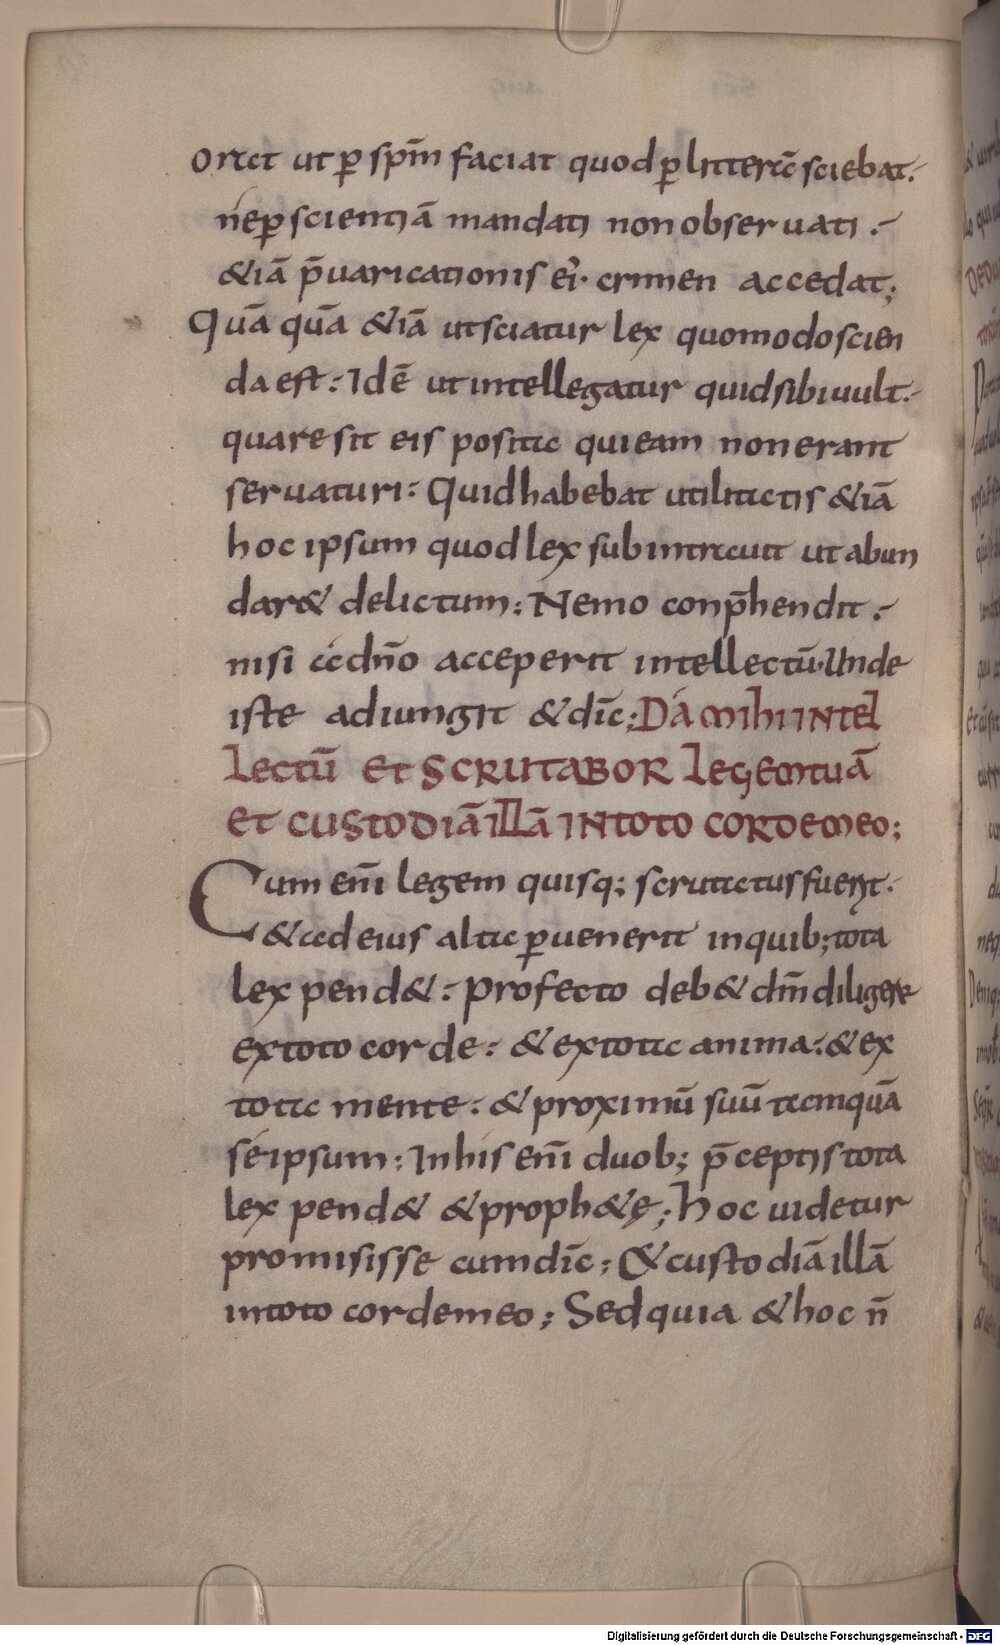 oret ut p̱ sp̄m faciat quod p̱ litterā sciebat.
ne p̱ scientiā mandati non obseruati.
&iā p̄uaricationis ei. crimen accedat;
Quāquā &iā ut sciatur lex quomodo scien
da est: Idē ut intellegatur quid sibi uult.
quare sit eis posita qui eam non erant
seruaturi: Quid habebat utilitatis &iā
hoc ipsum quod lex subintrauit ut abun
dar& delictum: Nemo conp̄hendit.
nisi ad n̄o acceperit intellectū. Unde
iste adiungit & dic̄: DA MIHI INTEL
LECTŪ ET SCRUTABOR LEGEM TUĀ
ET CUSTODIĀ ILLĀ IN TOTO CORDE MEO;
Cum eni̅ legem quisq; scrutatus fuerit.
& ad eius alta p̱uenerit in quib; tota
lex pend&: profecto deb& dm̄ diligere
ex toto corde: & ex tota anima: & ex
tota mente: & proximū suū tamquā
se ipsum: In his eni̅ duob; p̄ceptis tota
lex pend& & proph&ę; hoc uidetur
promisisse cum dic̄: & custodiā illā
in toto corde meo; Sed quia & hoc n̄
Digitalisierung gefördert durch die Deutsche Forschungsgemeinschaft - DFG